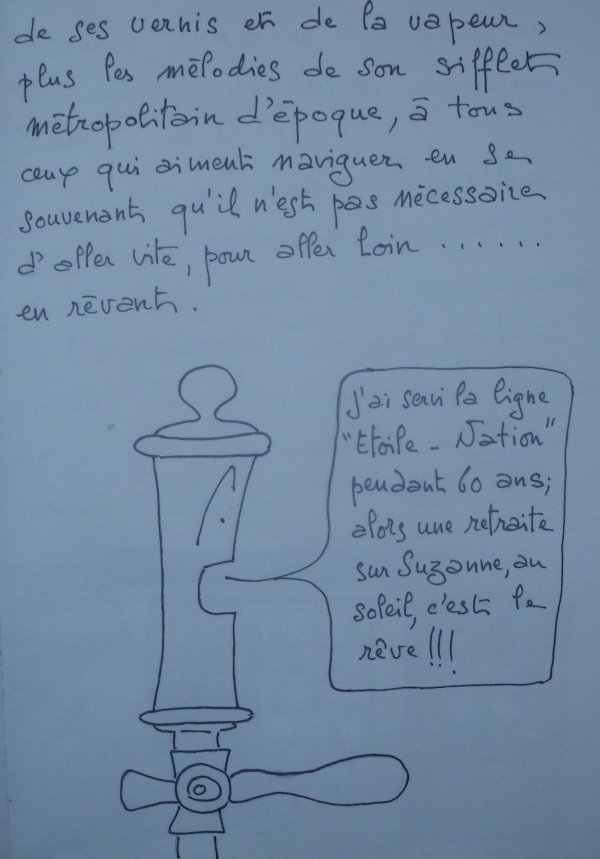 de ses vernis et de la vapeur,
plus les mélodies de son sifflet
métropolitain d'époque, à tous
ceux qui aiment naviguer en se
souvenant qu'il n'est pas nécessaire
d'aller vite, pour aller loin ......
en rêvant.
J'ai servi la ligne
"Etoile - Nation"
pendant 60 ans;
alors une retraite
sur Suzanne, au
soleil, c'est le
rêve !!!